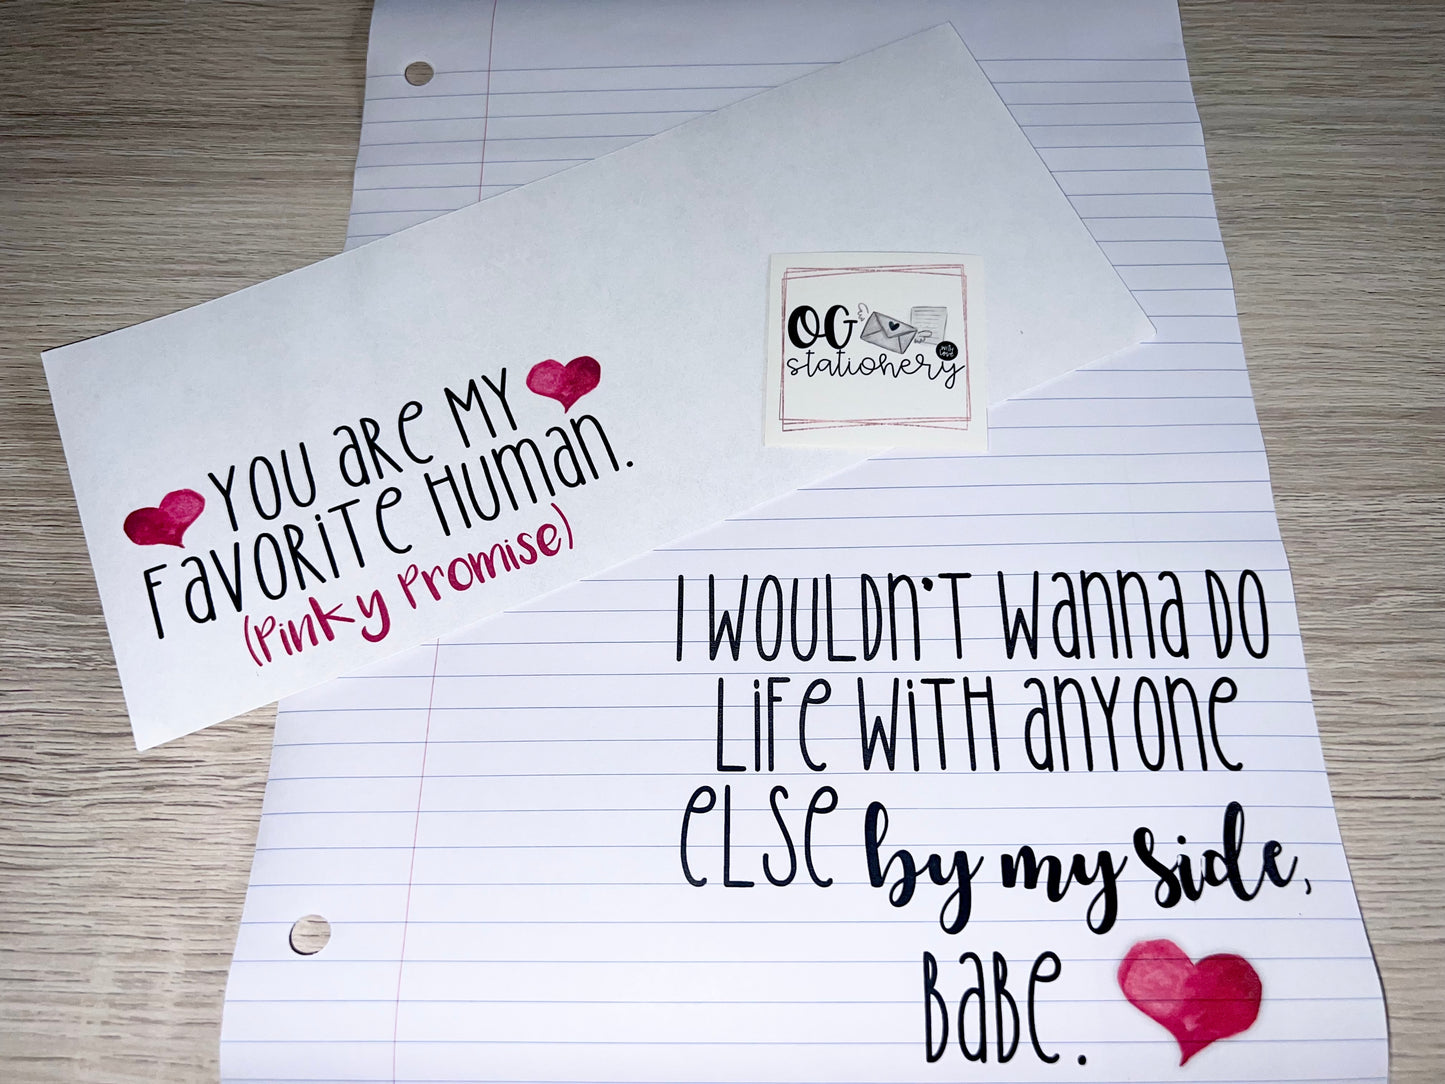 YOU aRe MY
FaVORiTe HUMan.
(Pinky Promise)
OG
stationery
with
love
I WOULDn'T Wanna DO
LiFe WiTH anYOne
eLSe by my side,
BaBe.